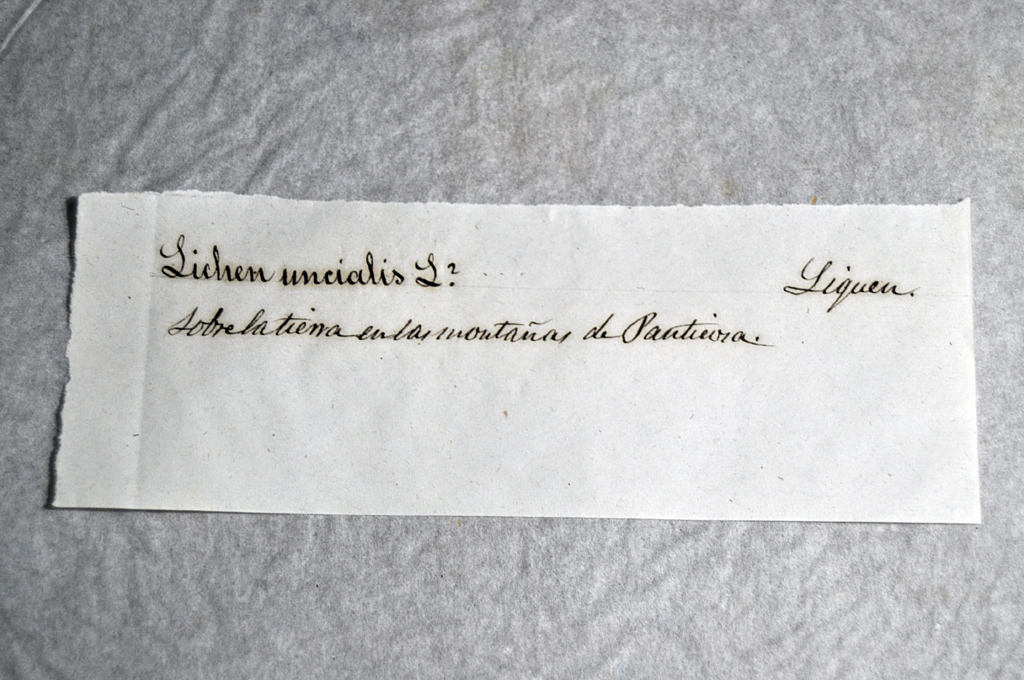 Lichen uncialis L? Liquen.
sobre la tierra en las montañas de Pantiosa.